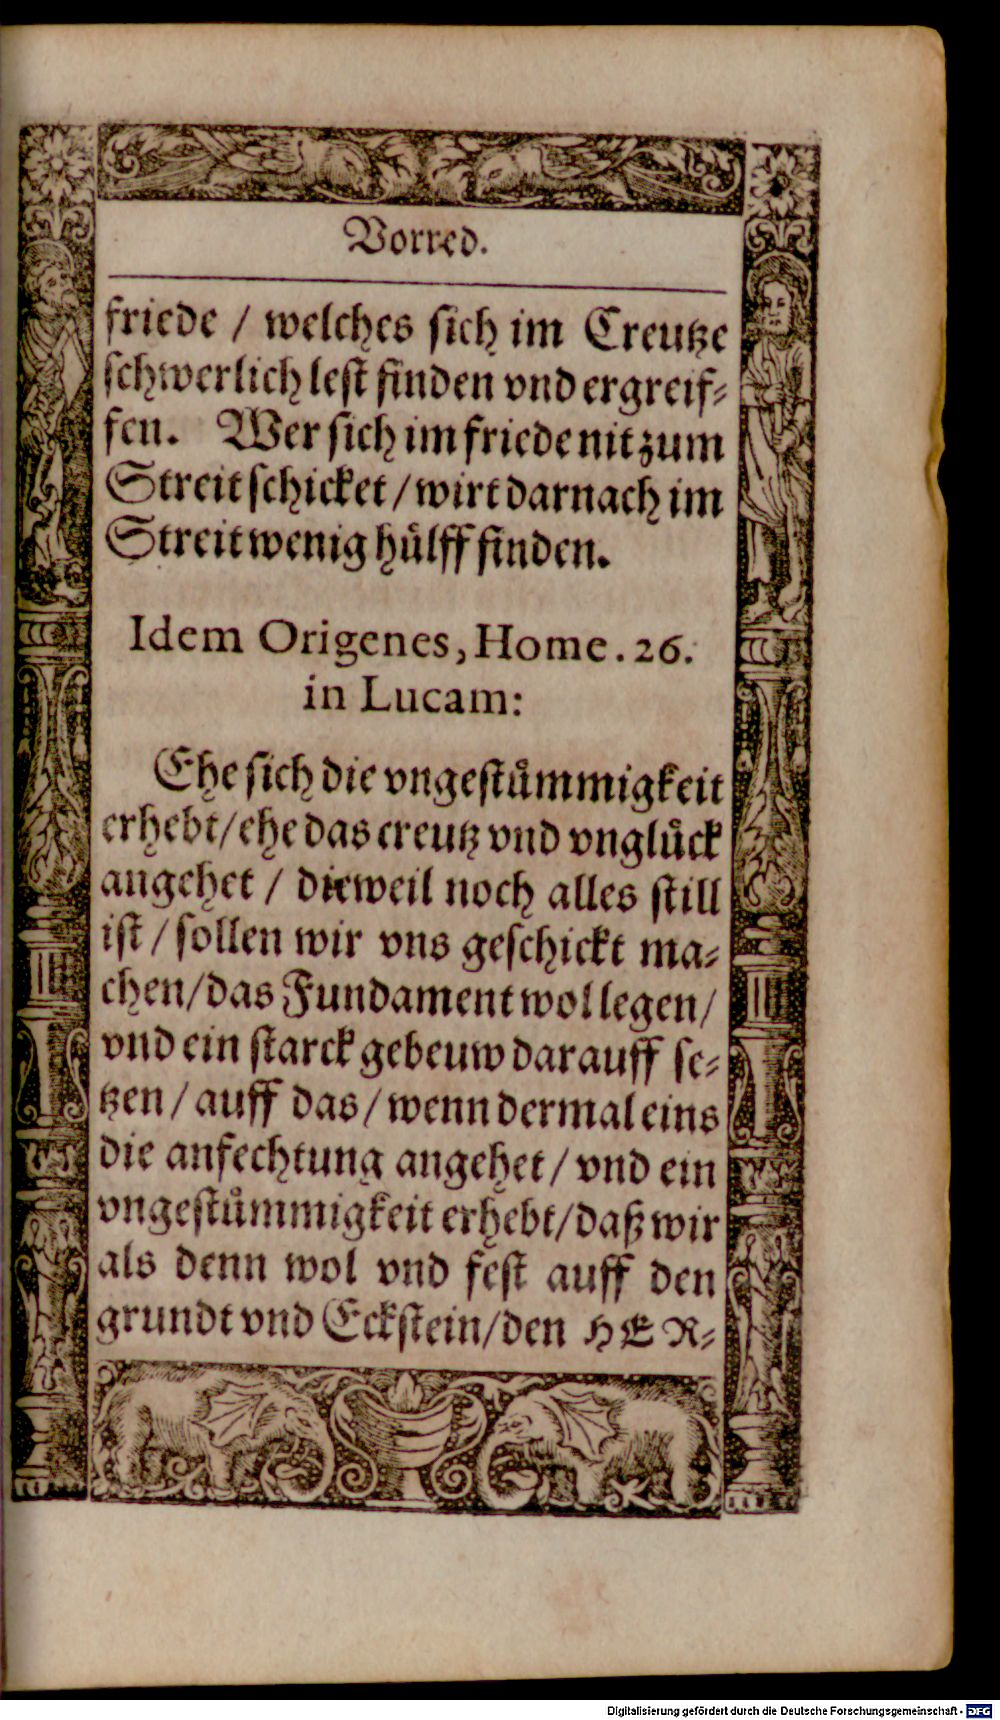 Vorred.
friede / welches sich im Creutze
schwerlich lest finden vnd ergreif-
fen. Wer sich im friede nit zum
Streit schicket / wirt darnach im
Streit wenig hůlff finden.
Idem Origenes, Home. 26.
in Lucam:
Ehe sich die vngestůmmigkeit
erhebt / ehe das creutz vnd vnglůck
angehet / dieweil noch alles still
ist / sollen wir vns geschickt ma-
chen / das Fundament wol legen /
vnd ein starck gebeuw darauff se-
tzen / auff das / wenn dermal eins
die anfechtung angehet / vnd ein
vngestůmmigkeit erhebt / daß wir
als denn wol vnd fest auff den
grundt vnd Eckstein / den HER-
Digitalisierung gefördert durch die Deutsche Forschungsgemeinschaft - DFG